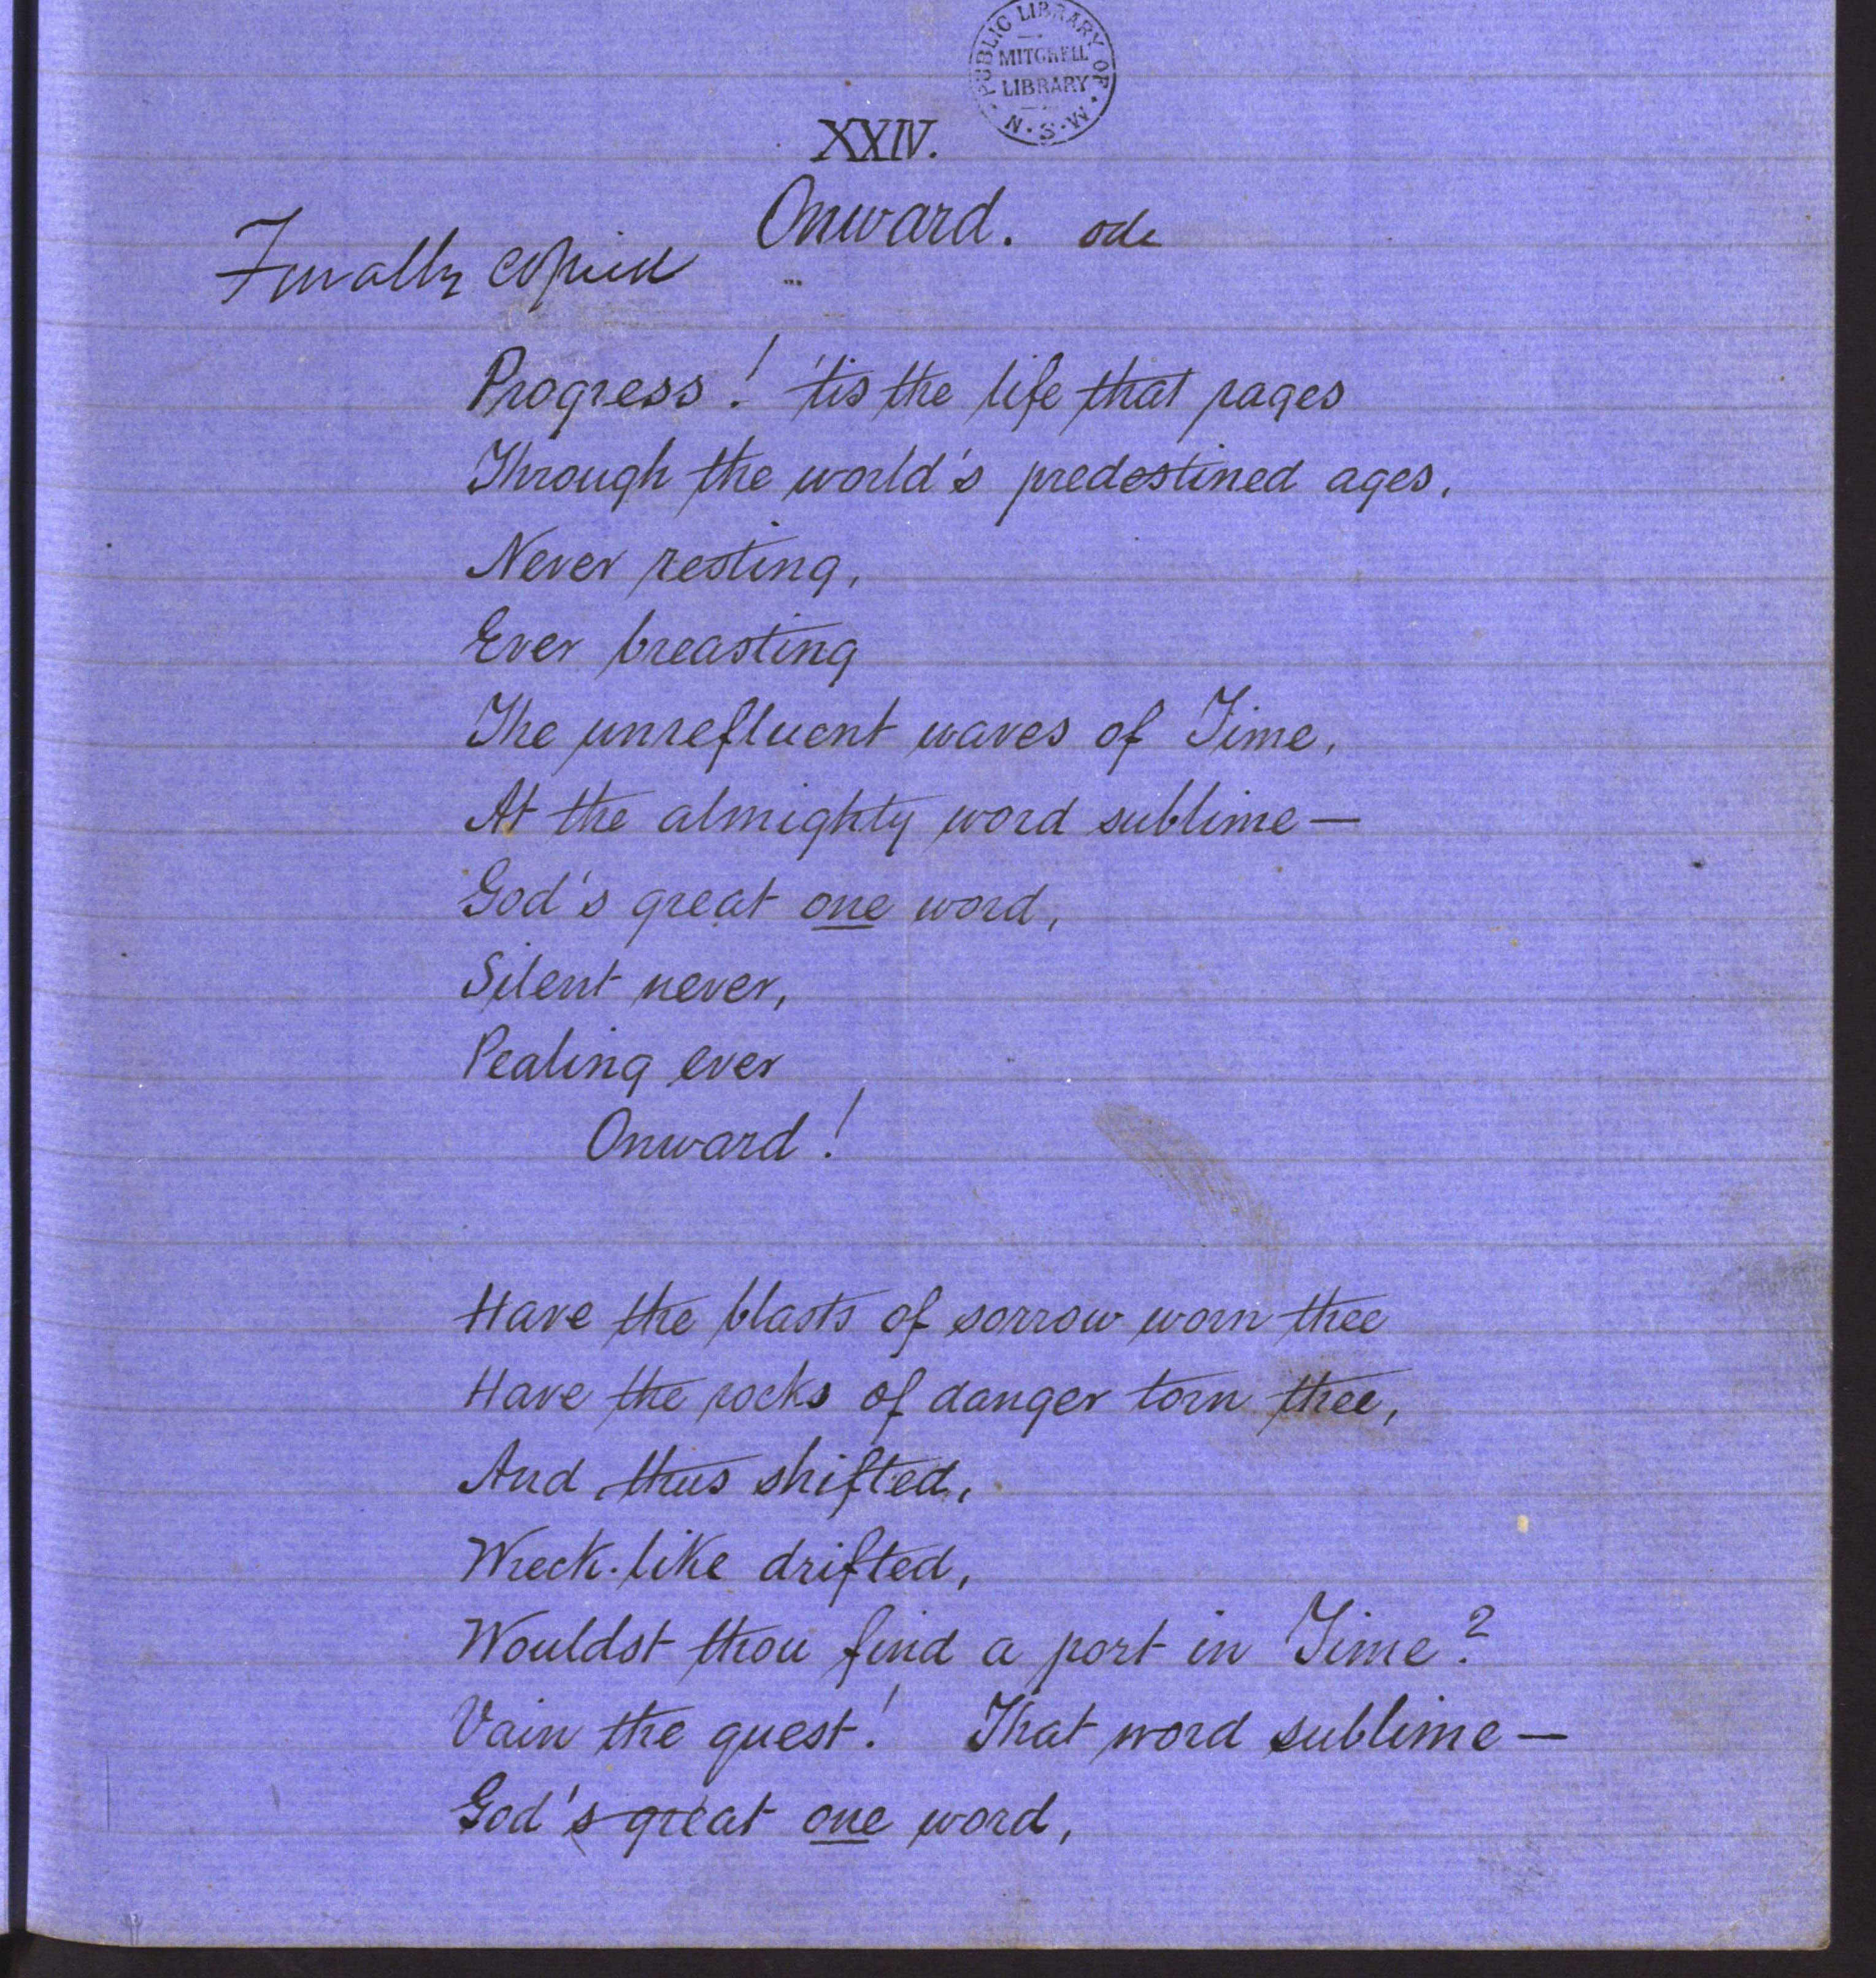 PUBLIC LIBRARY OF N.S.W.
MITCHELL
LIBRARY
XXIV.
Onward. ode
Finally copied
Progress! 'tis the life that rages
Through the world's predestined ages,
Never resting,
Ever breasting
The unrefluent waves of Time,
At the almighty word sublime—
God's great one word,
Silent never,
Pealing ever
Onward!
Have the blasts of sorrow worn thee
Have the rocks of danger torn thee,
And thus shifted,
Wreck-like drifted,
Wouldst thou find a port in Time?
Vain the quest! That word sublime—
God's great one word,